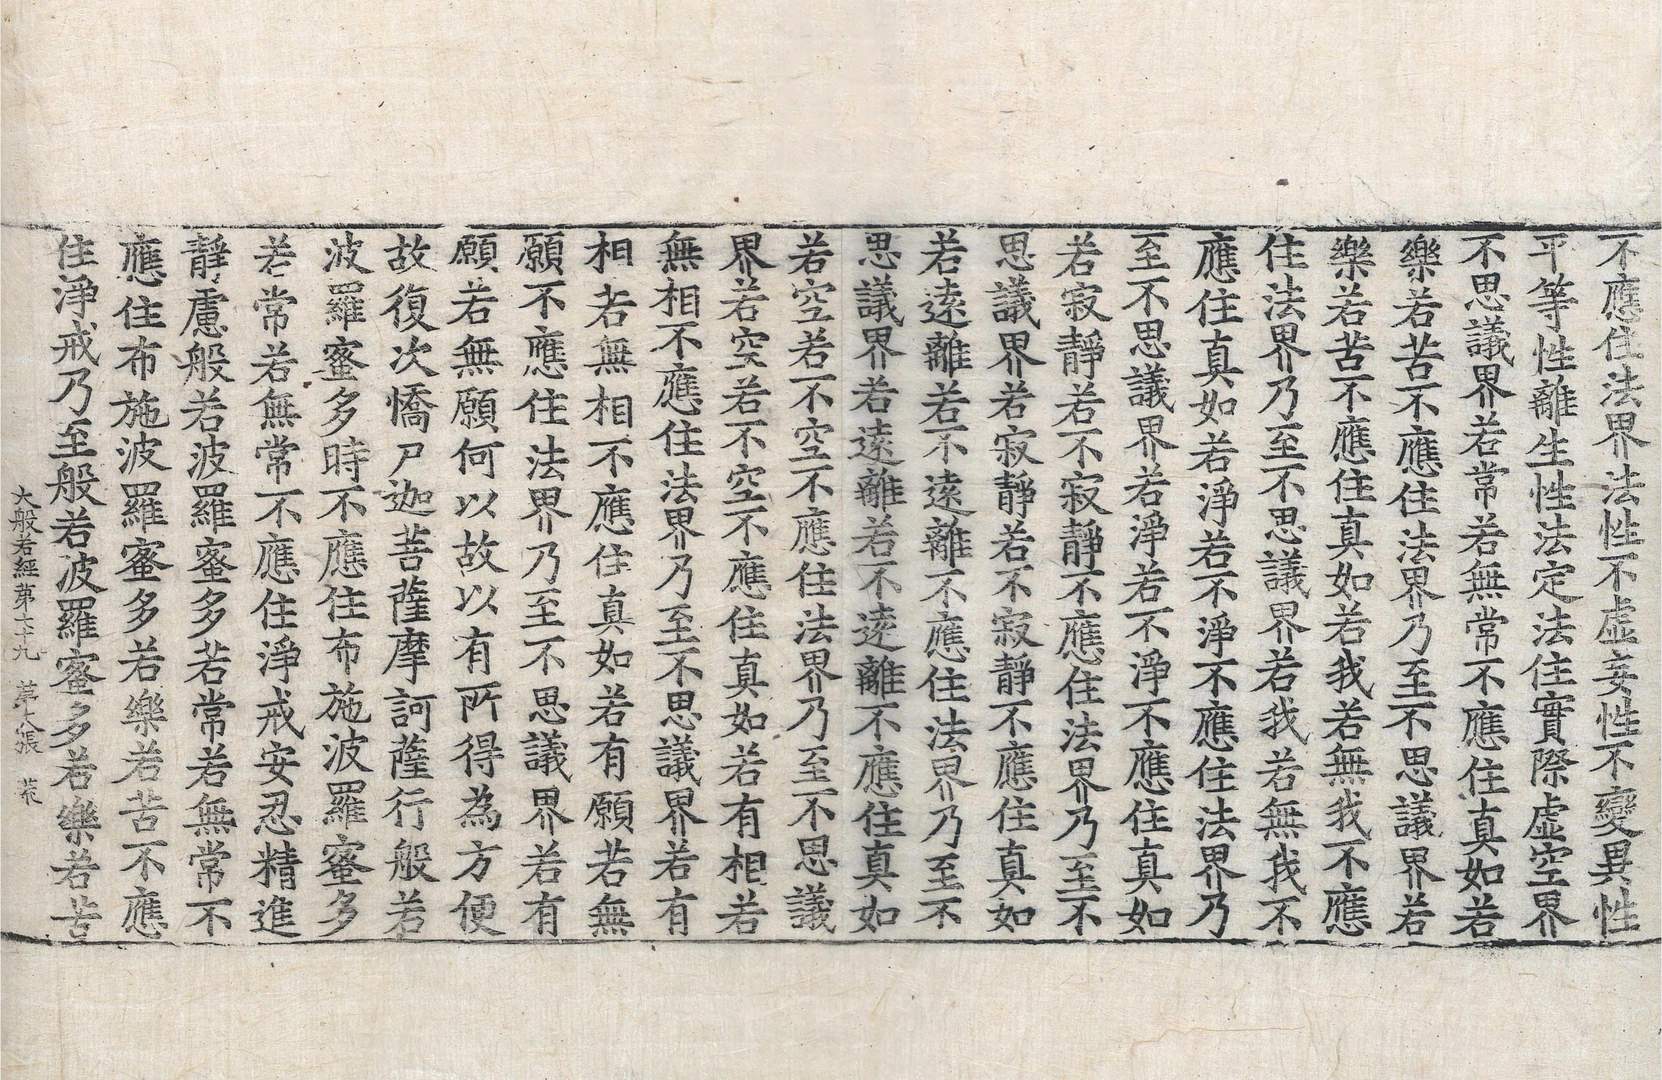 不應住法界法性不虛妄性不變異性
平等性離生性法定法住實際虛空界
不思議界若常若無常不應住真如若
樂若苦不應住法界乃至不思議界若
樂若苦不應住真如若我若無我不應
住法界乃至不思議界若我若無我不
應住真如若淨若不淨不應住法界乃
至不思議界若淨若不淨不應住真如
若寂靜若不寂靜不應住法界乃至不
思議界若寂靜若不寂靜不應住真如
若遠離若不遠離不應住法界乃至不
思議界若遠離若不遠離不應住真如
若空若不空不應住法界乃至不思議
界若空若不空不應住真如若有相若
無相不應住法界乃至不思議界若有
相若無相不應住真如若有願若無
願不應住法界乃至不思議界若有
願若無願何以故以有所得為方便
故復次憍尸迦菩薩摩訶薩行般若
波羅蜜多時不應住布施波羅蜜多
若常若無常不應住淨戒安忍精進
靜慮般若波羅蜜多若常若無常不
應住布施波羅蜜多若樂若苦不應
住淨戒乃至般若波羅蜜多若樂若苦
大般若經第六十九 第六張 荒